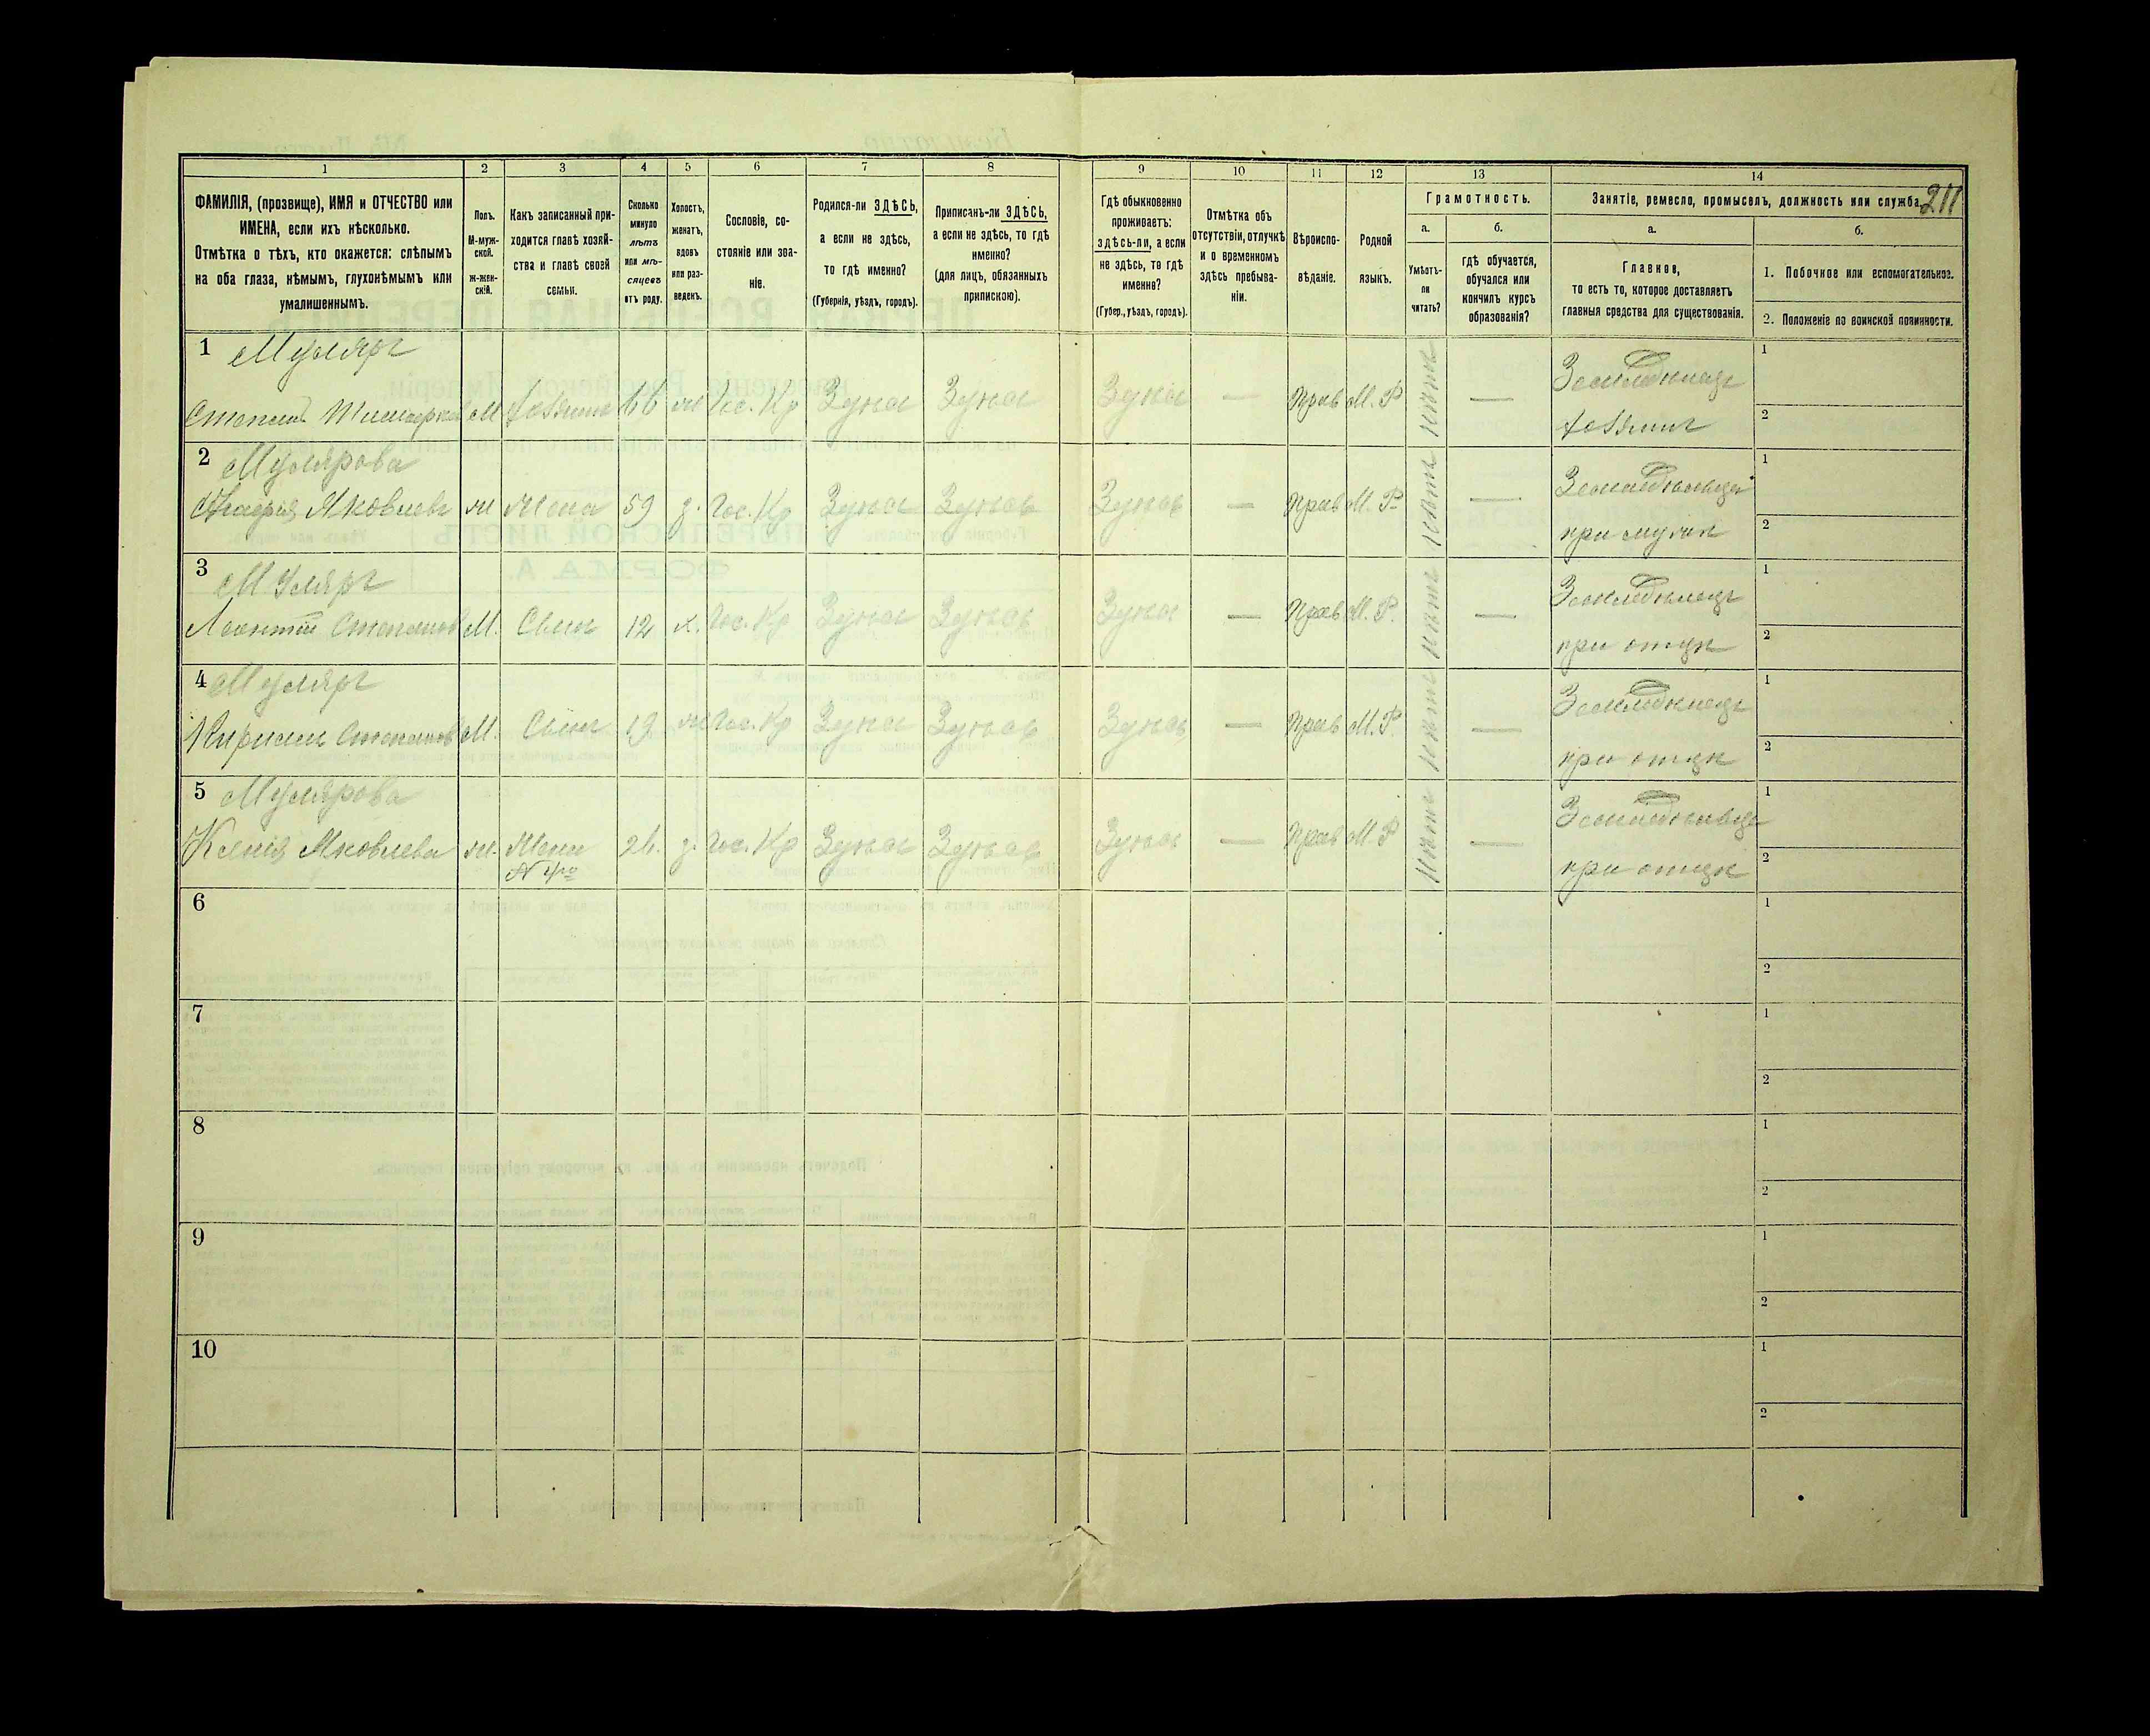 211
1
2
3
4
5
6
7
8
9
10
11
12
13
14
ФАМИЛІЯ, (прозвище), ИМЯ и ОТЧЕСТВО или
ИМЕНА, если ихъ нѣсколько.
Отмѣтка о тѣхъ, кто окажется: слѣпымъ
на оба глаза, нѣмымъ, глухонѣмымъ или
умалишеннымъ.
Полъ.
М-муж-
ской.
Ж-жен-
скій.
Какъ записанный при-
ходится главѣ хозяй-
ства и главѣ своей
семьи.
Сколько
минуло
лѣтъ
или мѣ-
сяцевъ
отъ роду.
Холостъ,
женатъ,
вдовъ
или раз-
веденъ.
Сословіе, со-
стояніе или зва-
ніе.
Родился-ли ЗДѢСЬ,
а если не здѣсь,
то гдѣ именно?
(Губернія, уѣздъ, городъ).
Приписанъ-ли ЗДѢСЬ,
а если не здѣсь, то гдѣ
именно?
(для лицъ, обязанныхъ
припискою).
Гдѣ обыкновенно
проживаетъ:
здѣсь-ли, а если
не здѣсь, то гдѣ
именно?
(Губер., уѣздъ, городъ).
Отмѣтка объ
отсутствіи, отлучкѣ
и о временномъ
здѣсь пребыва-
ніи.
Вѣроиспо-
вѣданіе.
Родной
языкъ.
Грамотность.
а.
Умѣетъ-
ли
читать?
б.
гдѣ обучается,
обучался или
кончилъ курсъ
образованія?
Занятіе, ремесло, промыселъ, должность или служба.
а.
Главное,
то есть то, которое доставляетъ
главныя средства для существованія.
б.
1. Побочное или вспомогательное.
2. Положеніе по воинской повинности.
1 Муляръ
Степанъ М хозяинъ 66 ж Гос. Кр здѣсь здѣсь здѣсь — Прав М. Р нѣтъ — Земледѣлецъ
хозяинъ
1
2
2 Мулярова
Яковлева ж жена 59 з. Гос. Кр здѣсь здѣсь здѣсь — Прав М. Р нѣтъ —
при мужѣ
1
2
3 Муляръ
Леонтій Степановъ М. Сынъ 12 х. Гос. Кр здѣсь здѣсь здѣсь — Прав М. Р. нѣтъ — Земледѣлецъ
при отцѣ
1
2
4 Муляръ
Кирилъ Степановъ М. Сынъ 19 ж Гос. Кр здѣсь здѣсь здѣсь — Прав М. Р. нѣтъ — Земледѣлецъ
при отцѣ
1
2
5 Мулярова
Ксенія Яковлева ж. Жена з. Гос. Кр здѣсь здѣсь здѣсь — Прав М. Р нѣтъ —
N 4го
при отцѣ
1
2
6
1
2
7
1
2
8
1
2
9
1
2
10
1
2